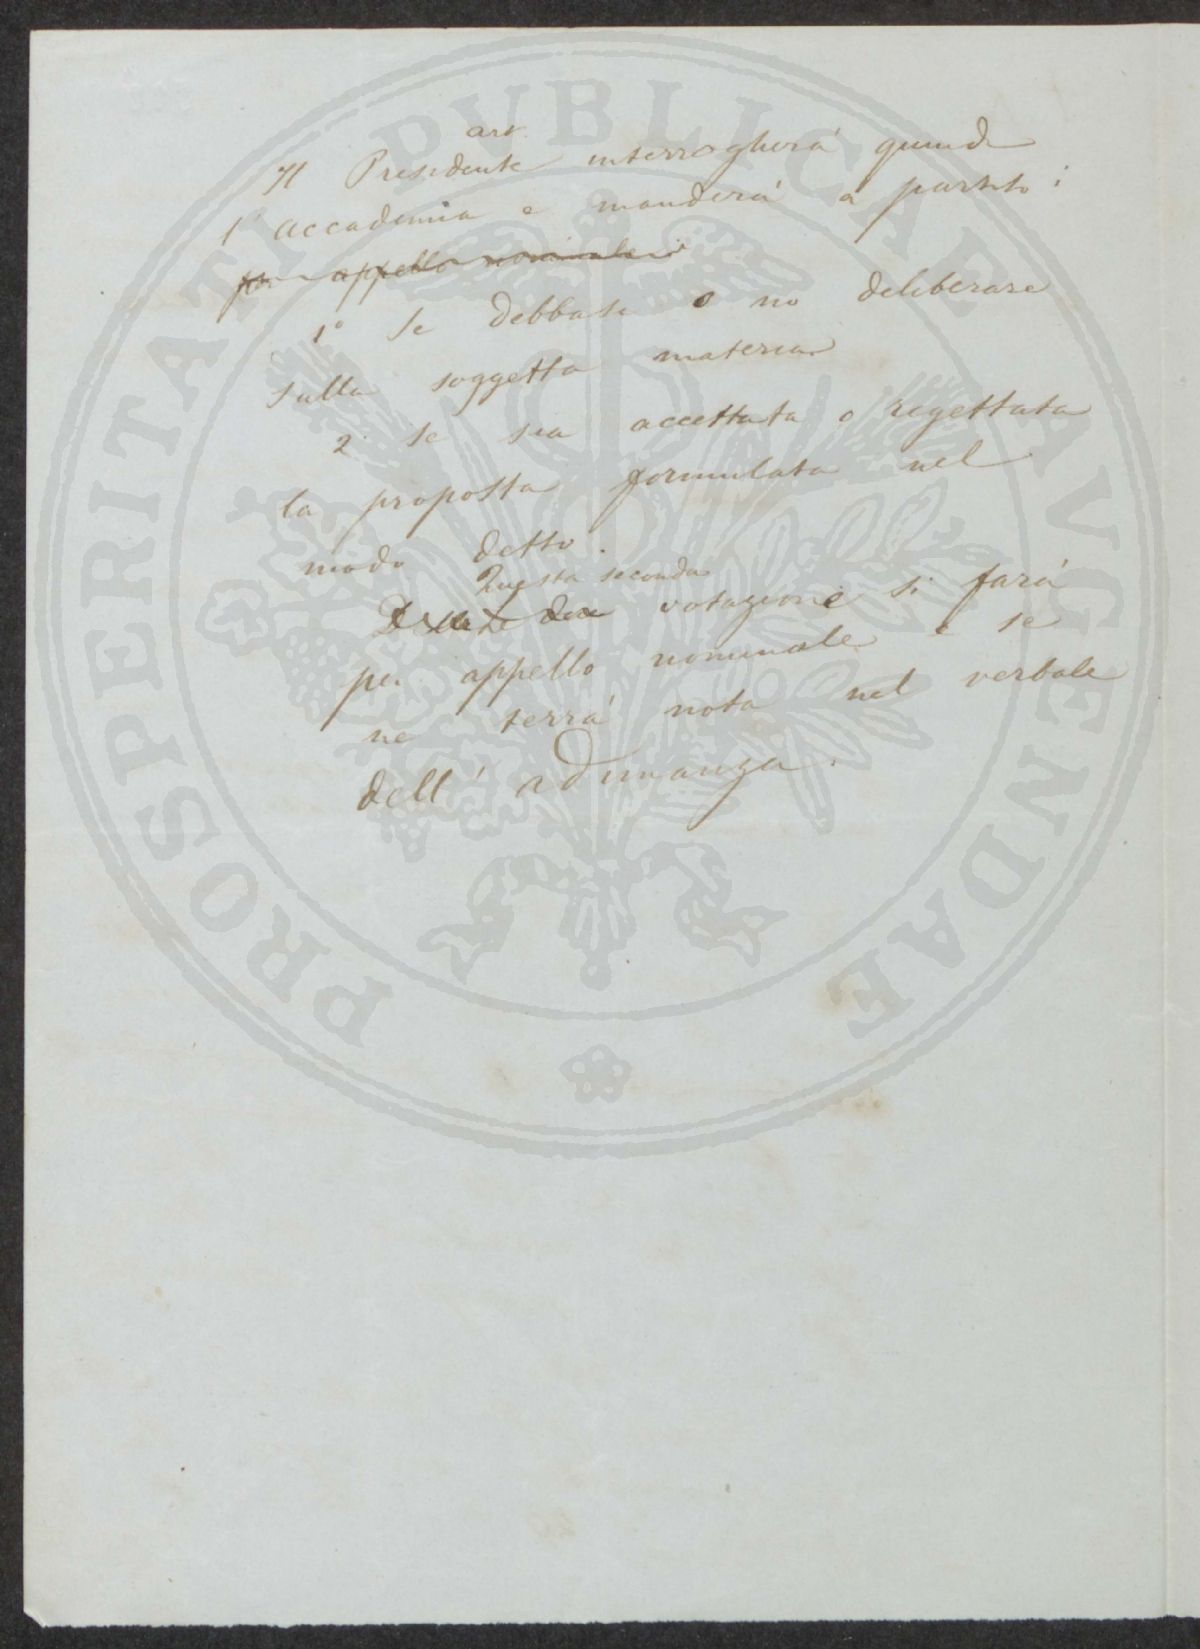 art.
Il Presidente interrogherà quindi
l'accademia e manderà a partito:
per appello nominale:
1° Se debbasi o no deliberare
sulla soggetta materia
2° Se sia accettata o regettata
la proposta formulata nel
modo detto.
Questa seconda
votazione si farà
per appello nominale e se
ne terrà nota nel verbale
dell'adunanza.
PROSPERITATI PVBLICAE AVGENDAE